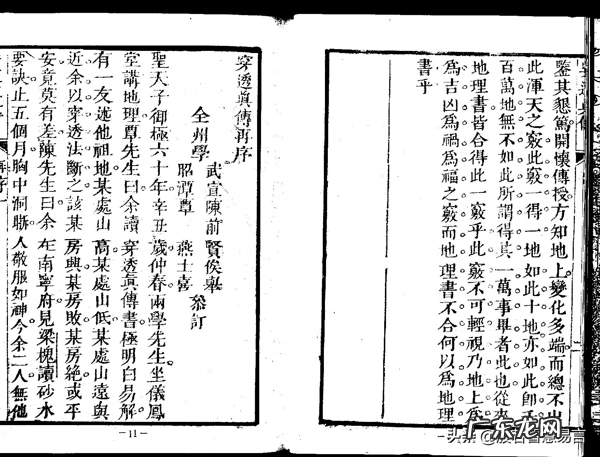 鑒其懇篤開懷傳授方知地上變化多端而總不出
此渾天之竅此竅一得一地如此十地亦如此卽千
百萬地無不如此所謂得其一萬事畢者此也從來
地理書皆合得此一竅乎此竅不可輕視乃地上爲
爲吉凶爲禍爲福之竅而地理書不合何以爲地理
書乎
二
穿透眞傳
穿透眞傳再序
武宣陳前賢俟舉
全州學
昭潭尊燕士喜叅訂
聖天子御極六十年辛丑歲仲春兩學先生坐儀鳳
堂講地理尊先生曰余讀穿透眞傳書極明白易解
有一友遊他祖地某處山高某處山低某處山遠與
近余以穿透法斷之該某房興某房敗某房絶或平
安竟莫有差陳先生曰余在南寧府見梁槐讀砂水
要訣止五個月胸中洞眀人敬服如神今余二人無他
再序
一
11
广东龙网
头条@